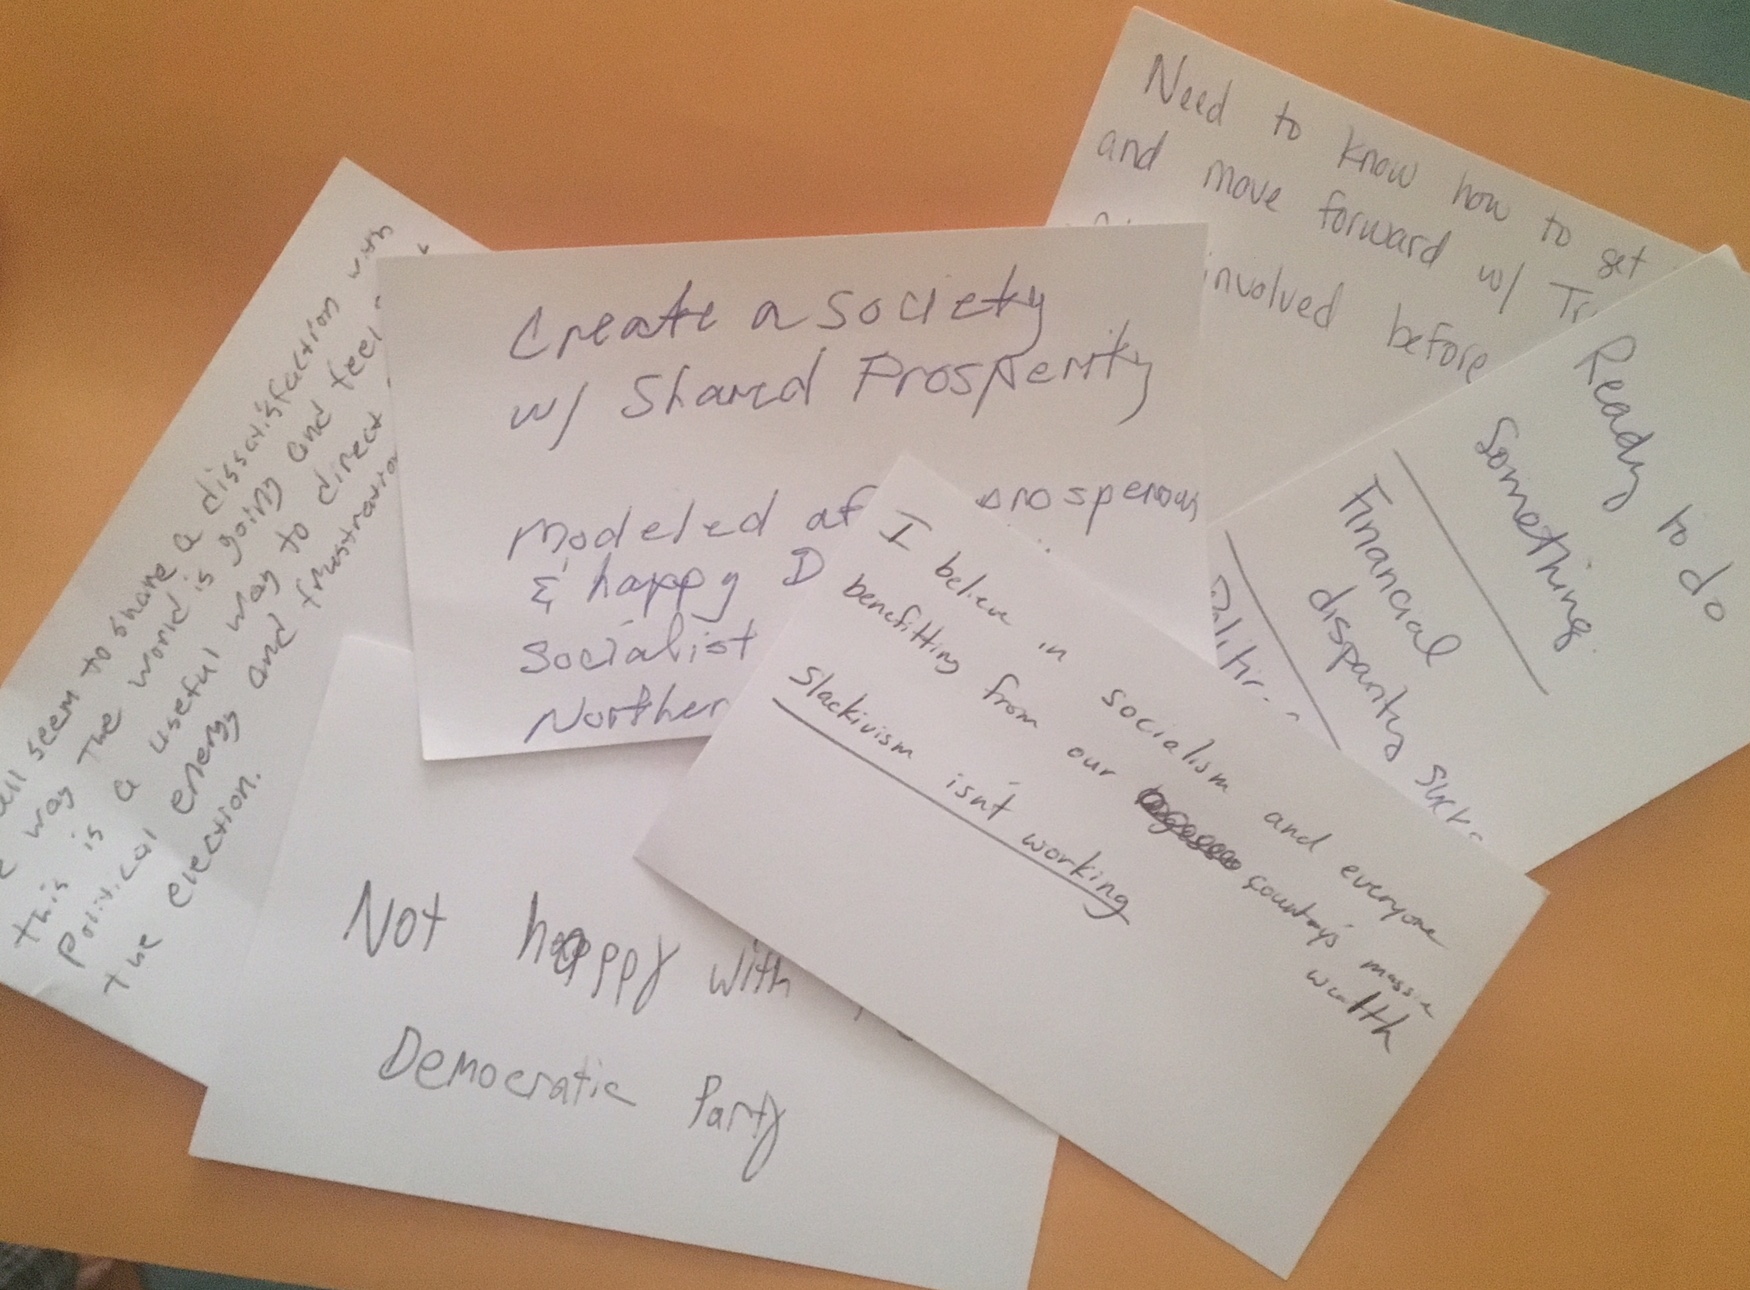 all seem to share a dissatisfaction with
way the world is going and feel
this is a useful way to direct
political energy and frustration
the election.
Create a society
w/ Shared Prosperity
Modeled af prosperous
& happy D
Socialist
Norther
Need to know how to get
and move forward w/ Tr
involved before
Ready to do
Something.
Financial
disparity suck
I believe in socialism and everyone
benefitting from our country's massive
wealth
Slackivism isn't working
Not happy with
Democratic Party